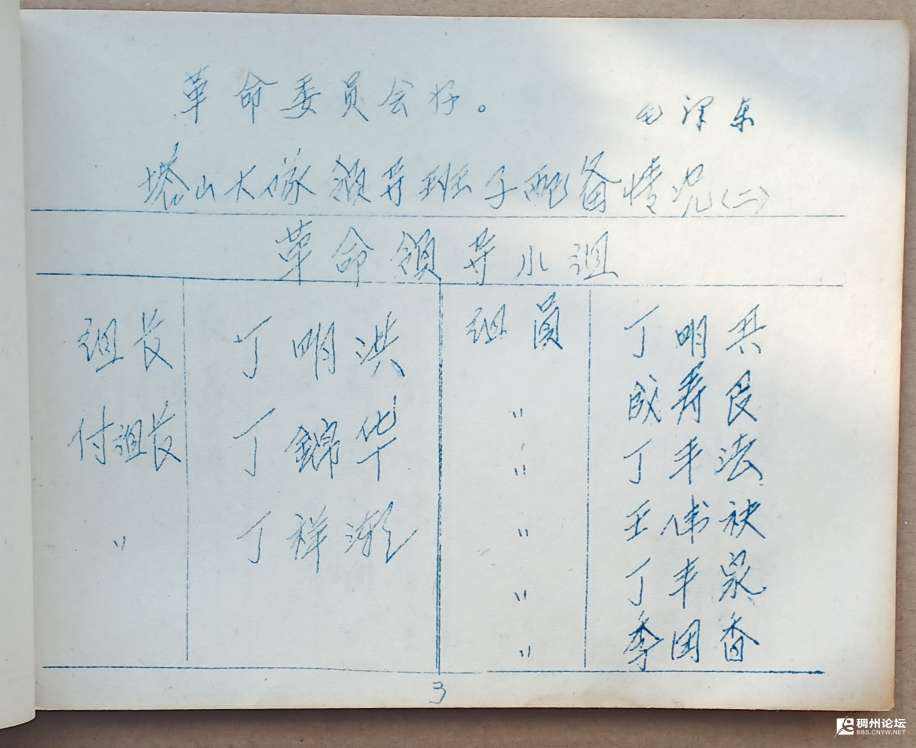 革命委员会好。
毛泽东
塔山大队领导班子配备情况(二)
革命领导小组
组长 丁明洪 组员 丁明共
付组长 丁錦华 〃 成寿良
〃 丁丰法
〃 丁祥 〃 王伟
〃 丁丰泉
〃 季国香
3
稠州论坛
BBS.CNYW.NET